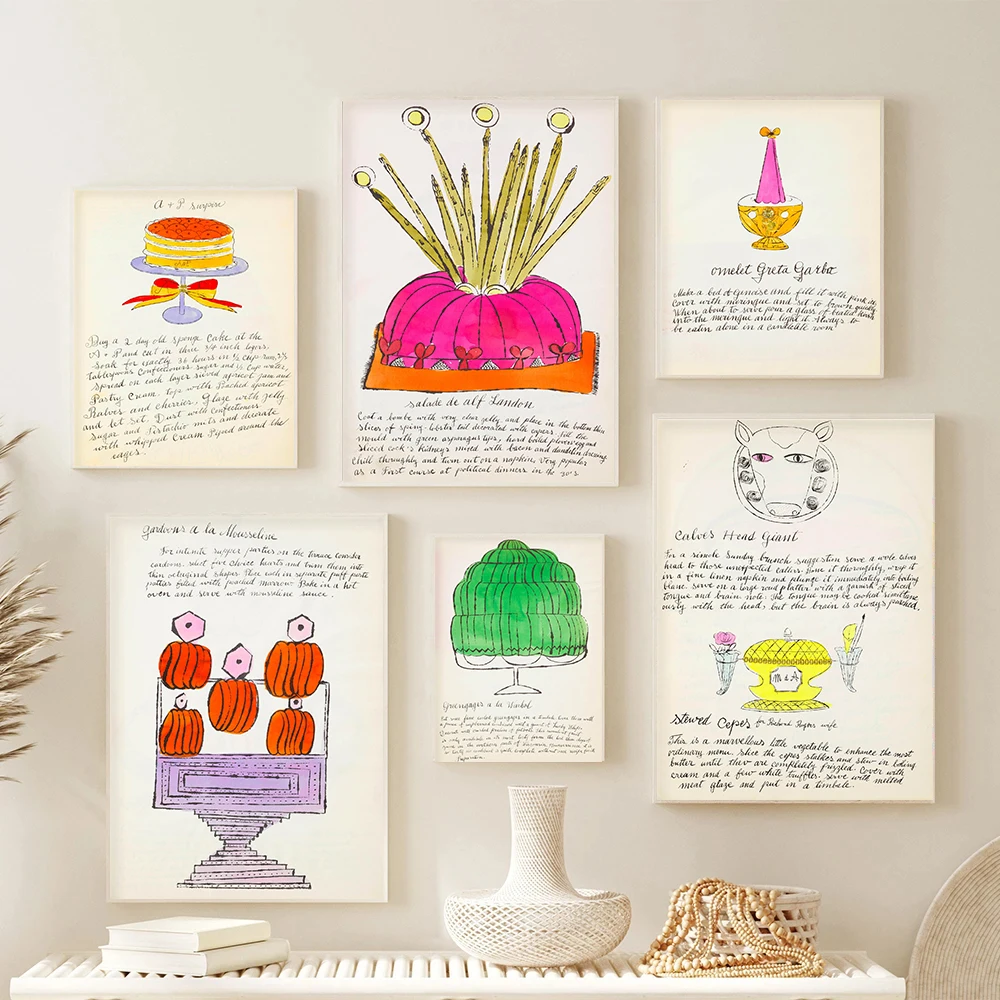 A + P Surprise
Buy a 2 day old sponge Cake at the
A + P and cut in three 3/4 inch layers.
Soak for exactly 36 hours in 1/2 cup rum, 2 1/2
tablespoons Confectioners sugar and 1/2 Cup water,
Spread on each layer sieved apricot jam and
Pastry Cream. top with Poached apricot
Halves and cherries. Glaze with jelly
and let set. Dust with Confectioners
Sugar and Pistachio nuts and decorate
with whipped Cream Piped around the
eages.
salade de alf Landon
Coat a bombe with very clear jelly and place in the bottom thin
slices of spiny lobster tail decorated with capers. fill the
mould with green asparagus tips, hard boiled plovers' egg and
sliced cock's kidneys mixed with bacon and dandelion dressing
chill thoroughly and turn out on a napkin. Very popular
as a First course at political dinners in the 30's
omelet Greta Garbo
Make a bed of Genoise and fill it with pink
Cover with meringue and set to brown quickly
When about to serve pour a glass of heated
into the meringue and light it. Always to
be eatin alone in a candlelite room
gardoons a la Mousseline
For intimite supper parties on the terrace consider
cardoons. select five choice hearts and turn them into
thin octaginal shapes. Place each in separate puff paste
patties filled with poached marrow. Bake in a hot
oven and serve with mousseline sauce.
Greengages a la Warhol
Calves Head Giant
For a simple Sunday brunch suggestion serve a wole calves
head to those unexpected callers. Bone it thoroughly, wrap it
in a fine linen napkin and plunge it immediately into boiling
blanc. serve on a large round platter with a garnish of sliced
tongue and brain. note: the tongue may be cooked simultane
ously with the head, but the brain is always poached.
M & A
Stewed Cepes for Richard Rogers wife
This is a marvellous little vegetable to enhance the most
ordinary menu. slice the cepes stalkes and stew in boiling
butter until they are completely frizzled. Cover with
cream and a few white truffles. serve with melted
meat glaze and put in a timbale.